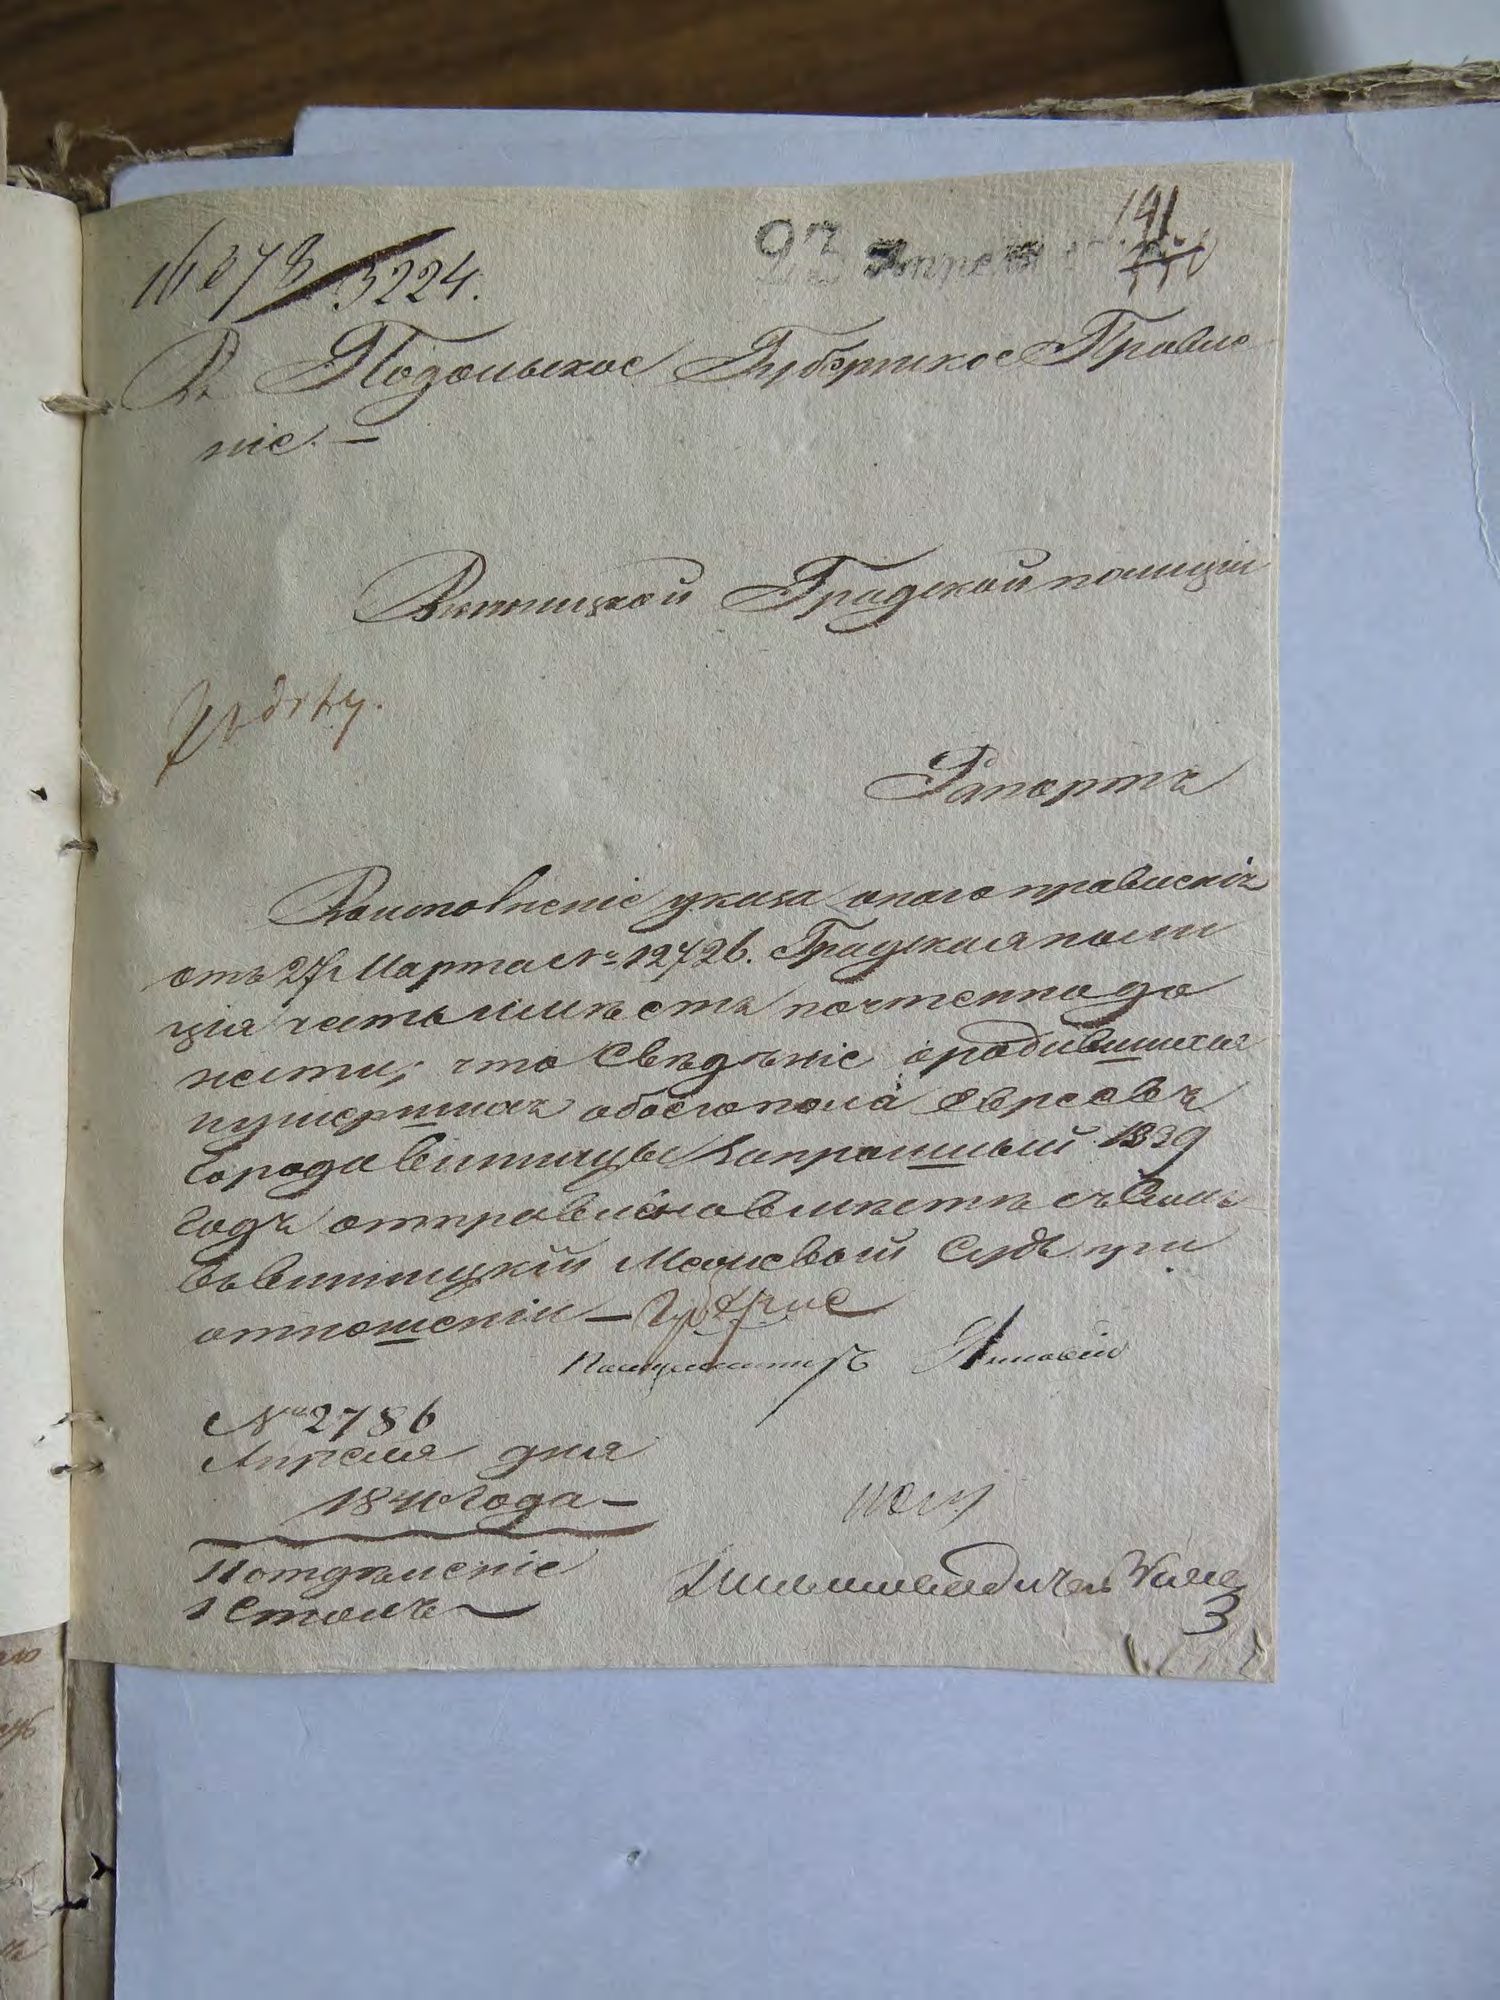 191
23 Апреля
16278/3224.
В Подольское Губернское Правле
ніе. —
Винницкой Градской полиціи
Къ дѣлу.
Рапортъ
Воисполненіе указа онаго правленія
отъ 27 Марта № 12726. Градская поли
ція честь имѣетъ почтенно до
нести, что Сведѣніе ородившихся
иумершихъ обоего пола Евреевъ
Города Винницы Запрошлый 1839
Годъ отправлено вместѣ съ симъ
въ Винницкій Межевый Судъ при
отношеніи —
Полицмейстеръ
№ 2786
Апреля дня
1840 Года —
II отделеніе
1 Столъ —
3